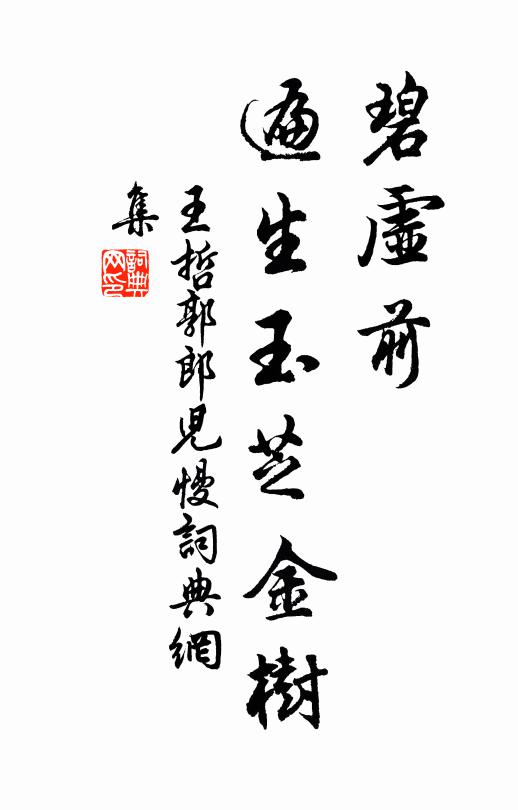 碧虛前
遍生玉芝金樹
王哲郭郎兒慢詞典網
集
詞典
网印